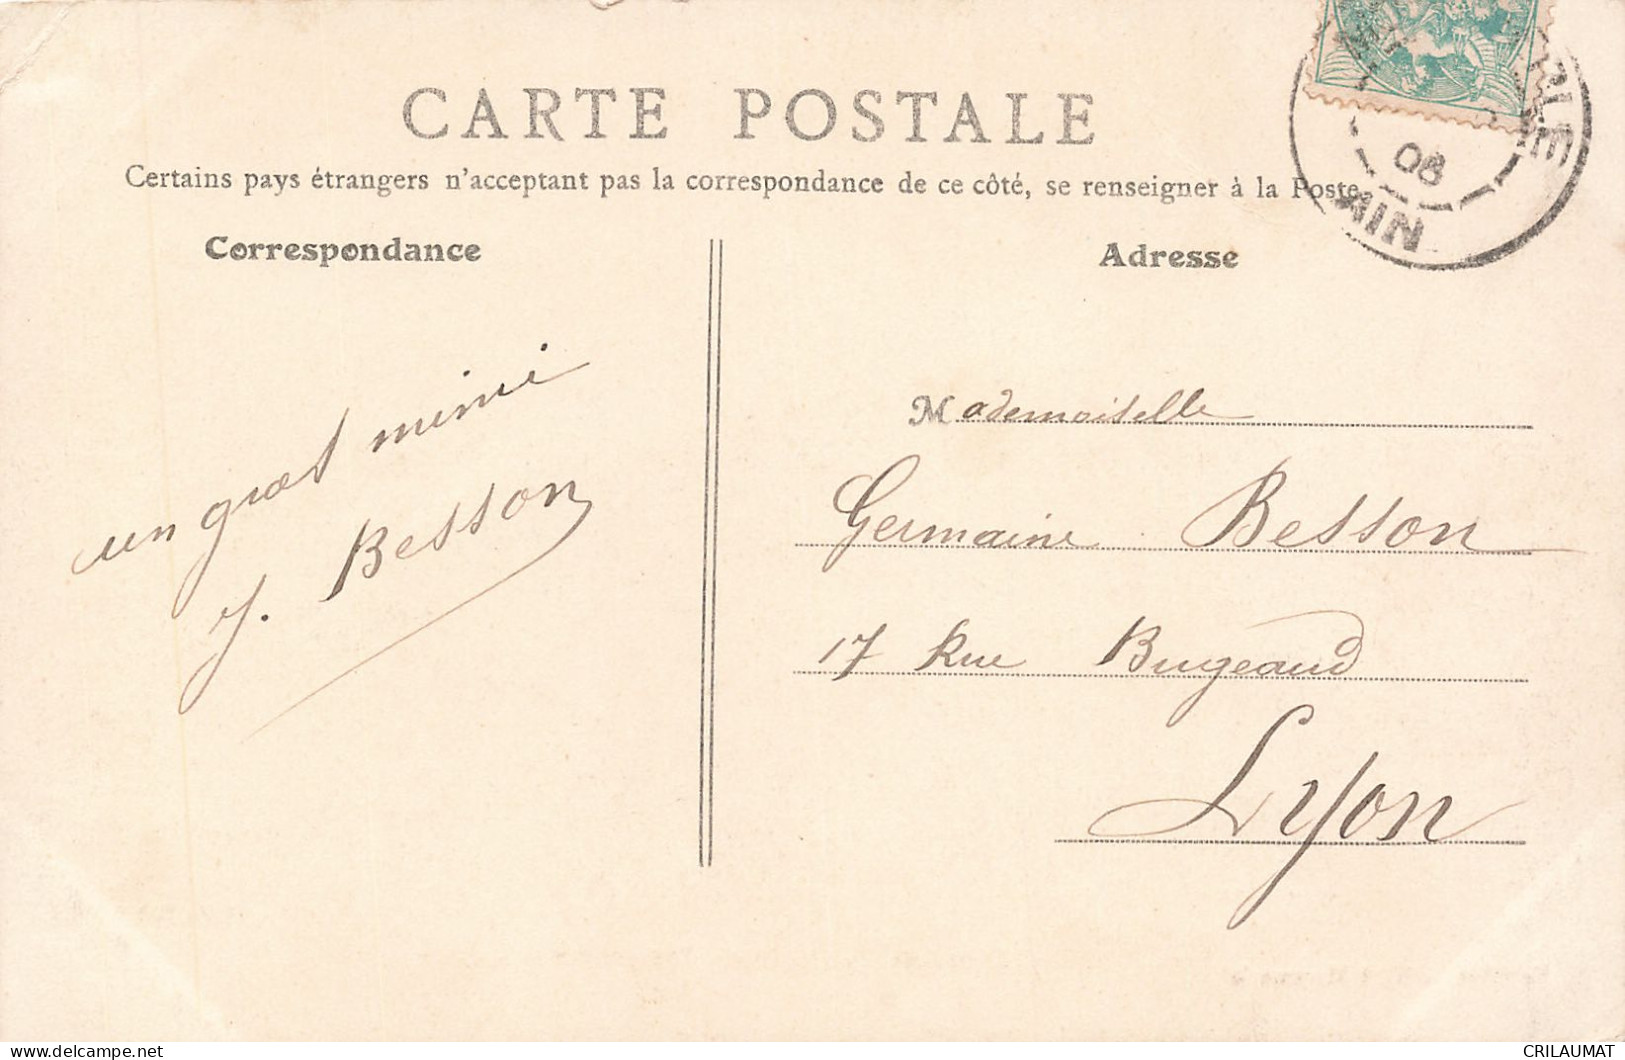 CARTE POSTALE
Certains pays étrangers n'acceptant pas la correspondance de ce côté, se renseigner à la Poste.
Correspondance
un gros mimi
J. Besson
Adresse
Mademoiselle
Germaine Besson
17 Rue Bugeaud
Lyon
08
AIN
CRILAUMAT